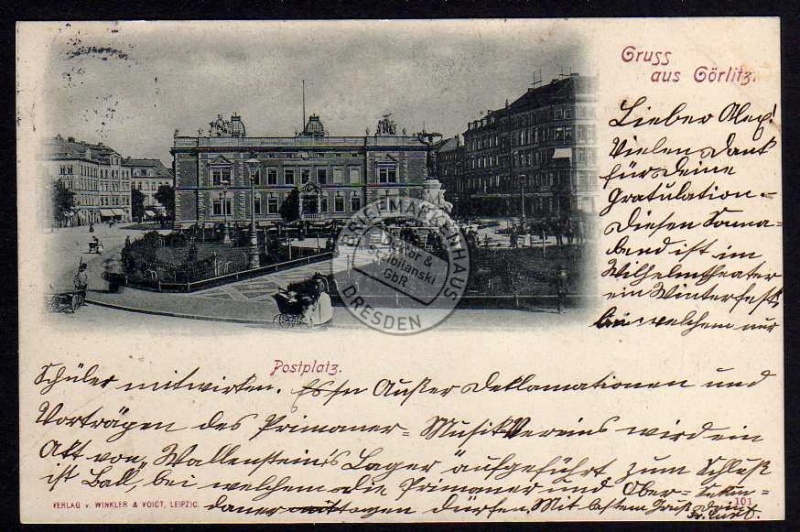 Gruss
aus Görlitz.
Lieber Alex!
Vielen Dank
für deine
Gratulation.
Diesen Sonna-
bend ist im
Wilhelmtheater
ein Winterfest,
bei welchem nur
Postplatz.
Schüler mitwirken. Außer Deklamationen und
Vorträgen des Primaner-Musikvereins wird ein
Akt von „Wallenstein's Lager" aufgeführt zum Schluß
ist Ball, bei welchen die Primaner und Ober-Sekun-
daner dürfen. Mit bestem Gruß Dein
VERLAG v. WINKLER & VOIGT, LEIPZIG.
101
BRIEFMARKENHAUS
GbR
DRESDEN